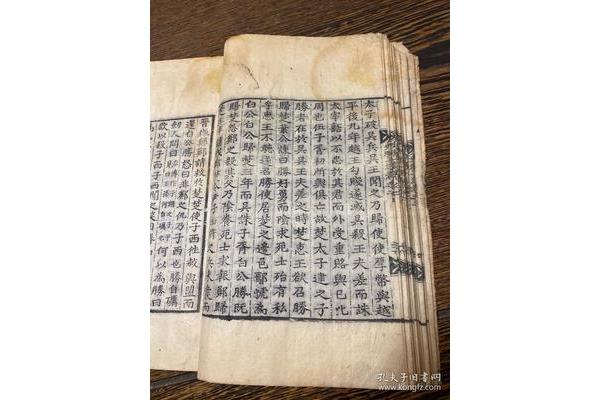 太子破吳兵吳王聞之乃歸使使厚幣與越
平後九年越王勾踐遂滅吳殺王夫差而誅
太宰嚭以不忠於其君而外受重賂與己比
周也伍子胥初所與俱亡故楚太子建之子
勝者在於吳吳王夫差之時楚惠王欲召勝
歸楚葉公諫曰勝好勇而陰求死士殆有私
乎惠王不聽遂召勝使居楚之邊邑鄢號爲
白公白公歸楚三年而吳誅子胥白公勝既
歸楚怨鄭之殺其父乃陰養死士求報鄭歸
兵未發而
晉伐鄭鄭請救於楚楚使子西往救與盟而
還白公勝怒曰非鄭之仇乃子西也勝自礪
劒人問曰何以爲勝曰
欲以殺子西子西聞之笑曰
孔夫子旧书网
www.kongfz.com